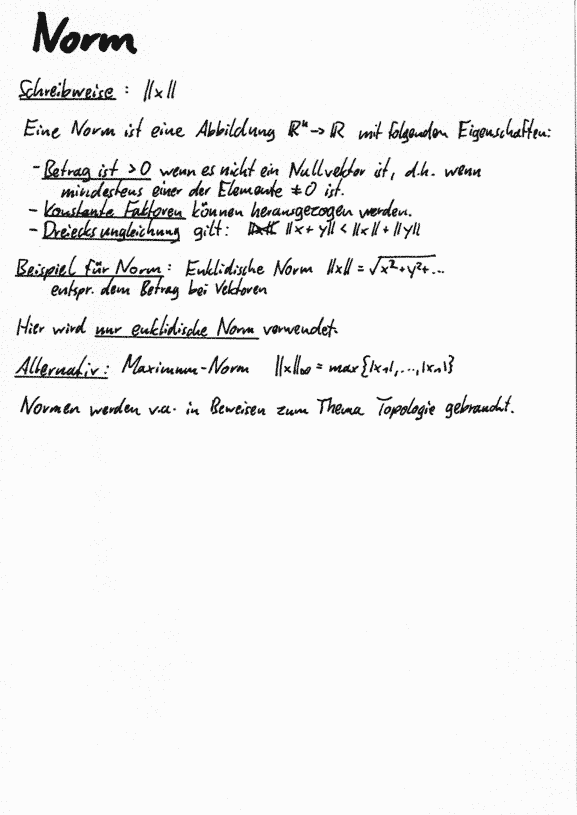 Norm
Schreibweise : ||x||
Eine Norm ist eine Abbildung ℝⁿ → ℝ mit folgenden Eigenschaften:
- Betrag ist > 0 wenn es nicht ein Nullvektor ist, d.h. wenn
mindestens einer der Elemente ≠ 0 ist.
- Konstante Faktoren können herausgezogen werden.
- Dreiecksungleichung gilt: ||x + y|| < ||x|| + ||y||
Beispiel für Norm : Euklidische Norm ||x|| = √x²+y²+...
entspr. dem Betrag bei Vektoren
Hier wird nur euklidische Norm verwendet.
Alternativ : Maximum-Norm ||x||∞ = max{|x₁|,...,|xₙ|}
Normen werden v.a. in Beweisen zum Thema Topologie gebraucht.